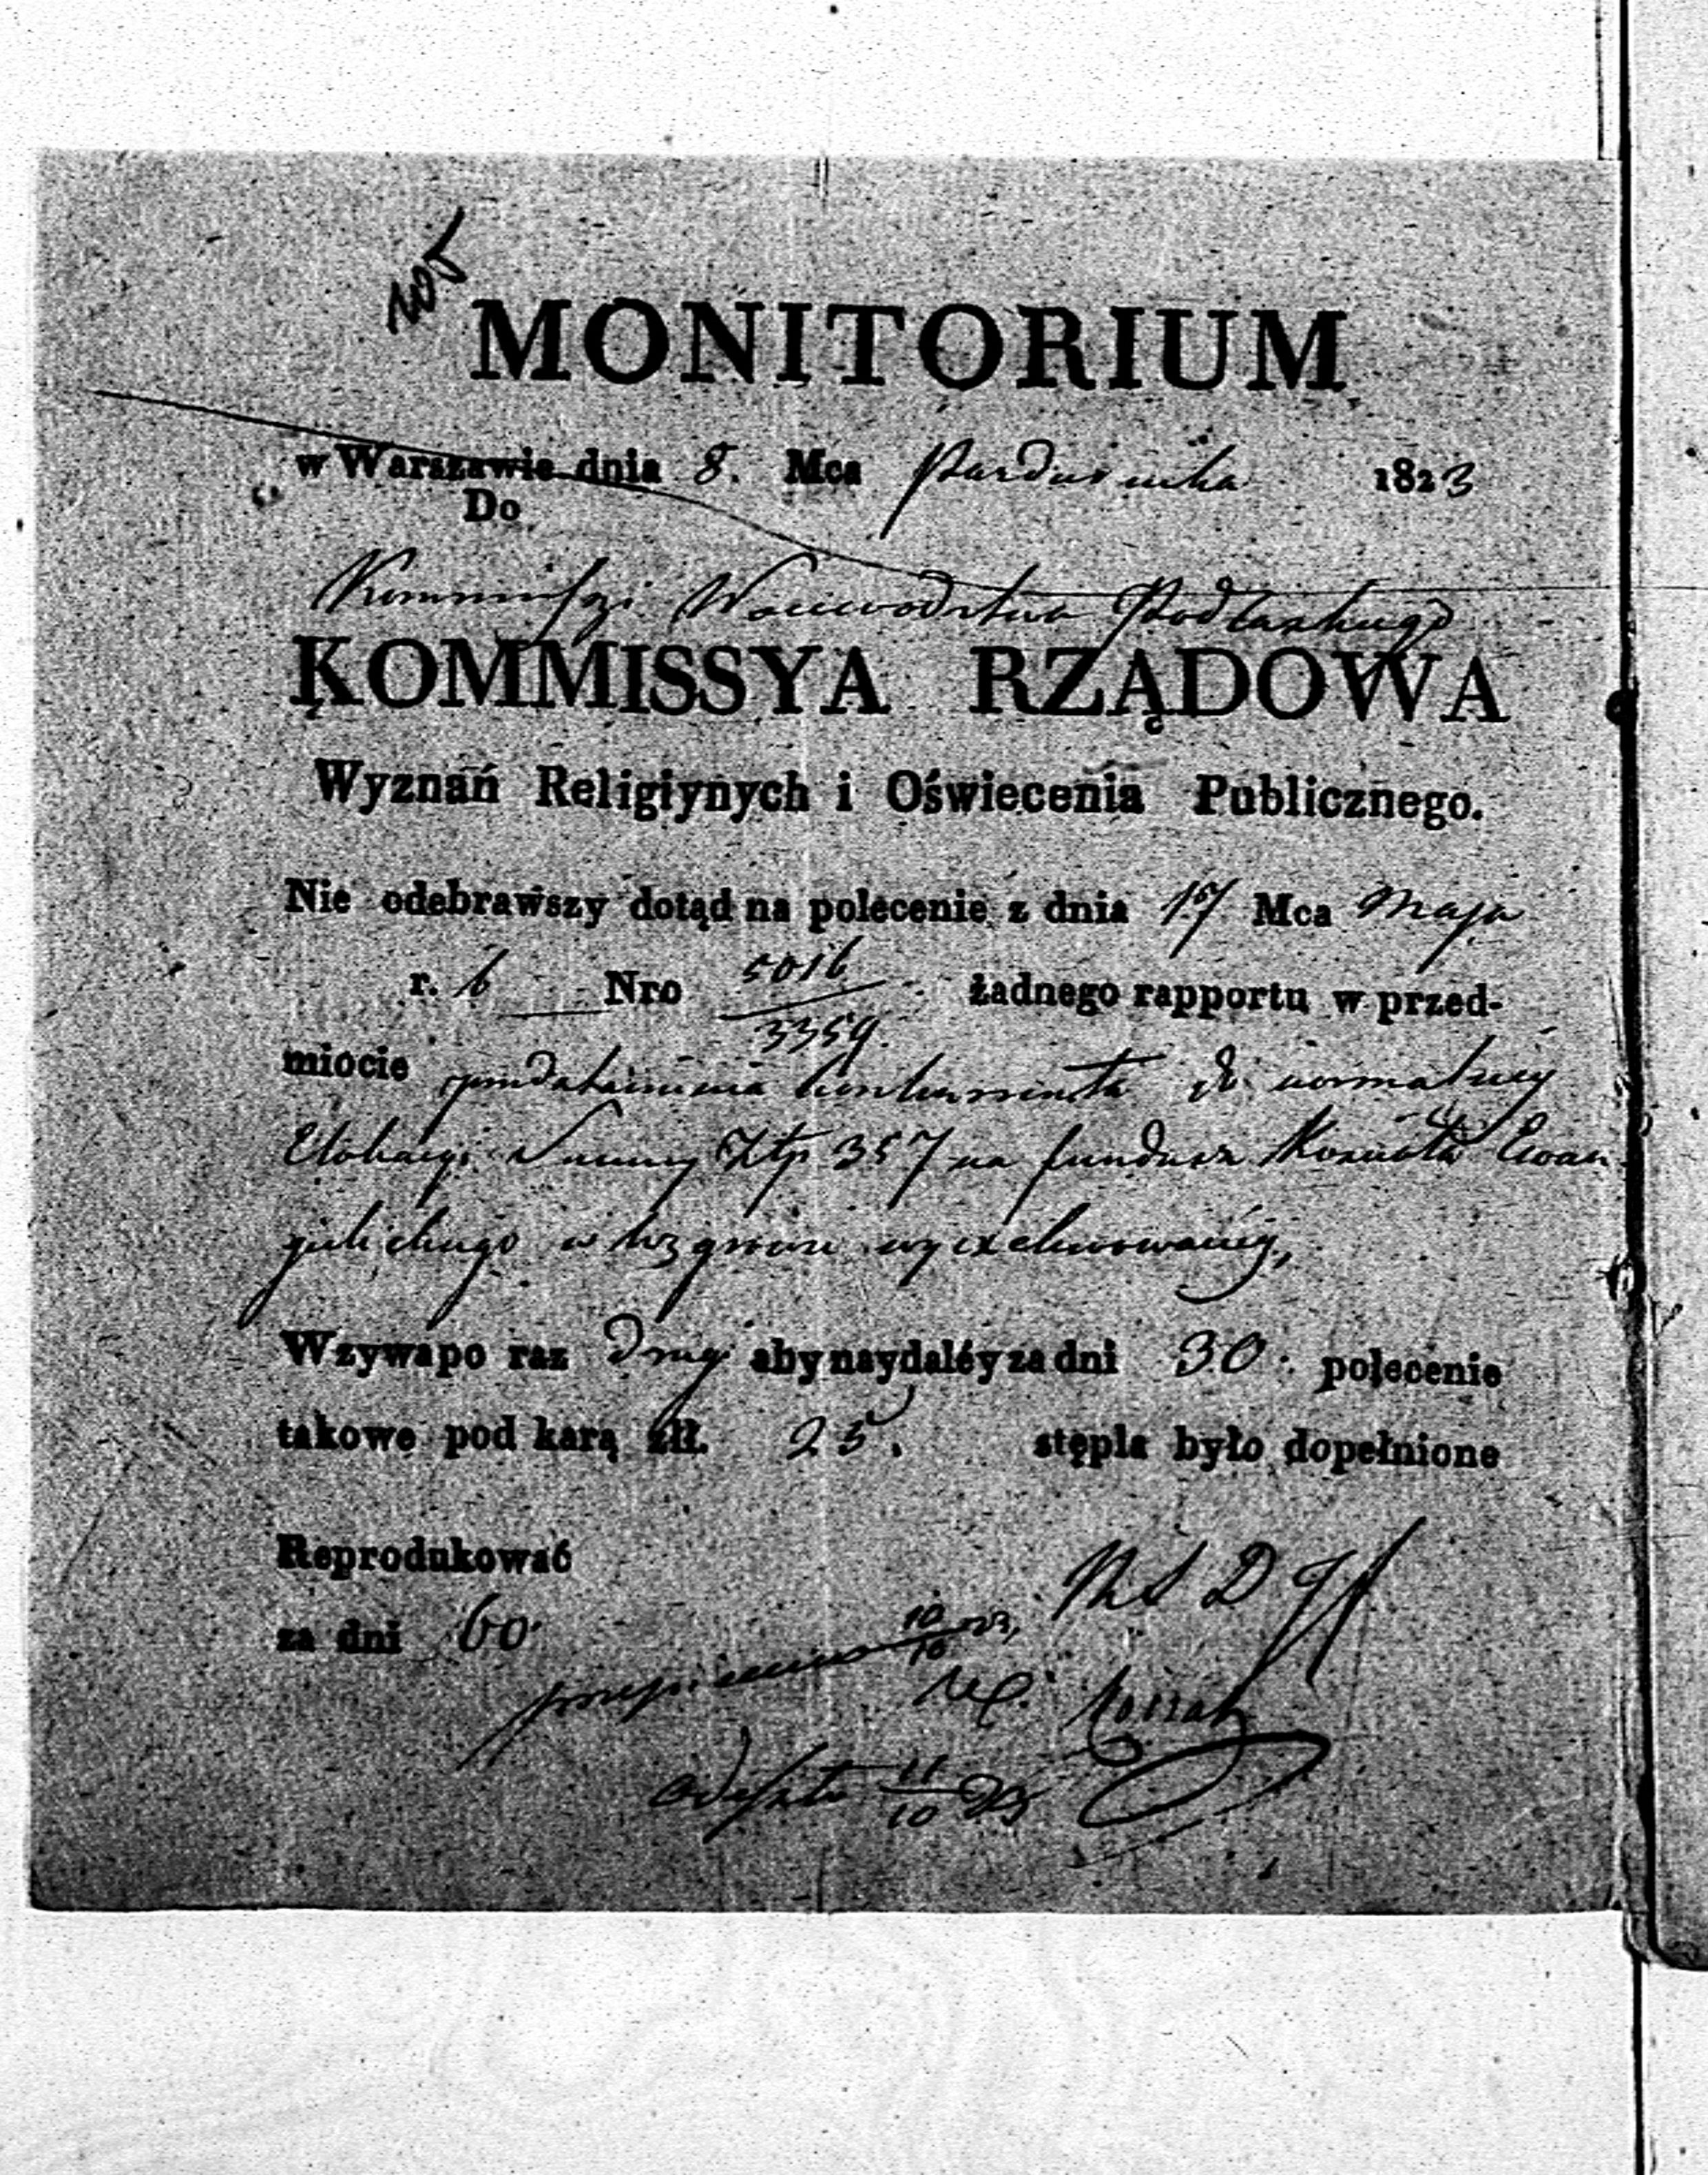 MONITORIUM
w Warszawie dnia 8. Mca Pazdziernika 1823
Do
Kommissyi Woiewodztwa Podlaskiego
KOMMISSYA RZĄDOWA
Wyznań Religiynych i Oświecenia Publicznego.
Nie odebrawszy dotąd na polecenie z dnia 17 Mca Maja
r. b Nro 5016/3359. żadnego rapportu w przed-
miocie do normalney
Elokacyi Summy Złp 357 na fundusz Kościoła Ewan
gielickiego w Węgrowie
Wzywa po raz drugi aby naydaléy za dni 30. polecenie
takowe pod karą złł. 25. stępla było dopełnione
Reprodukować
za dni 60.
M S D
przepisano 10/10 23,
odeszło 11/10 23